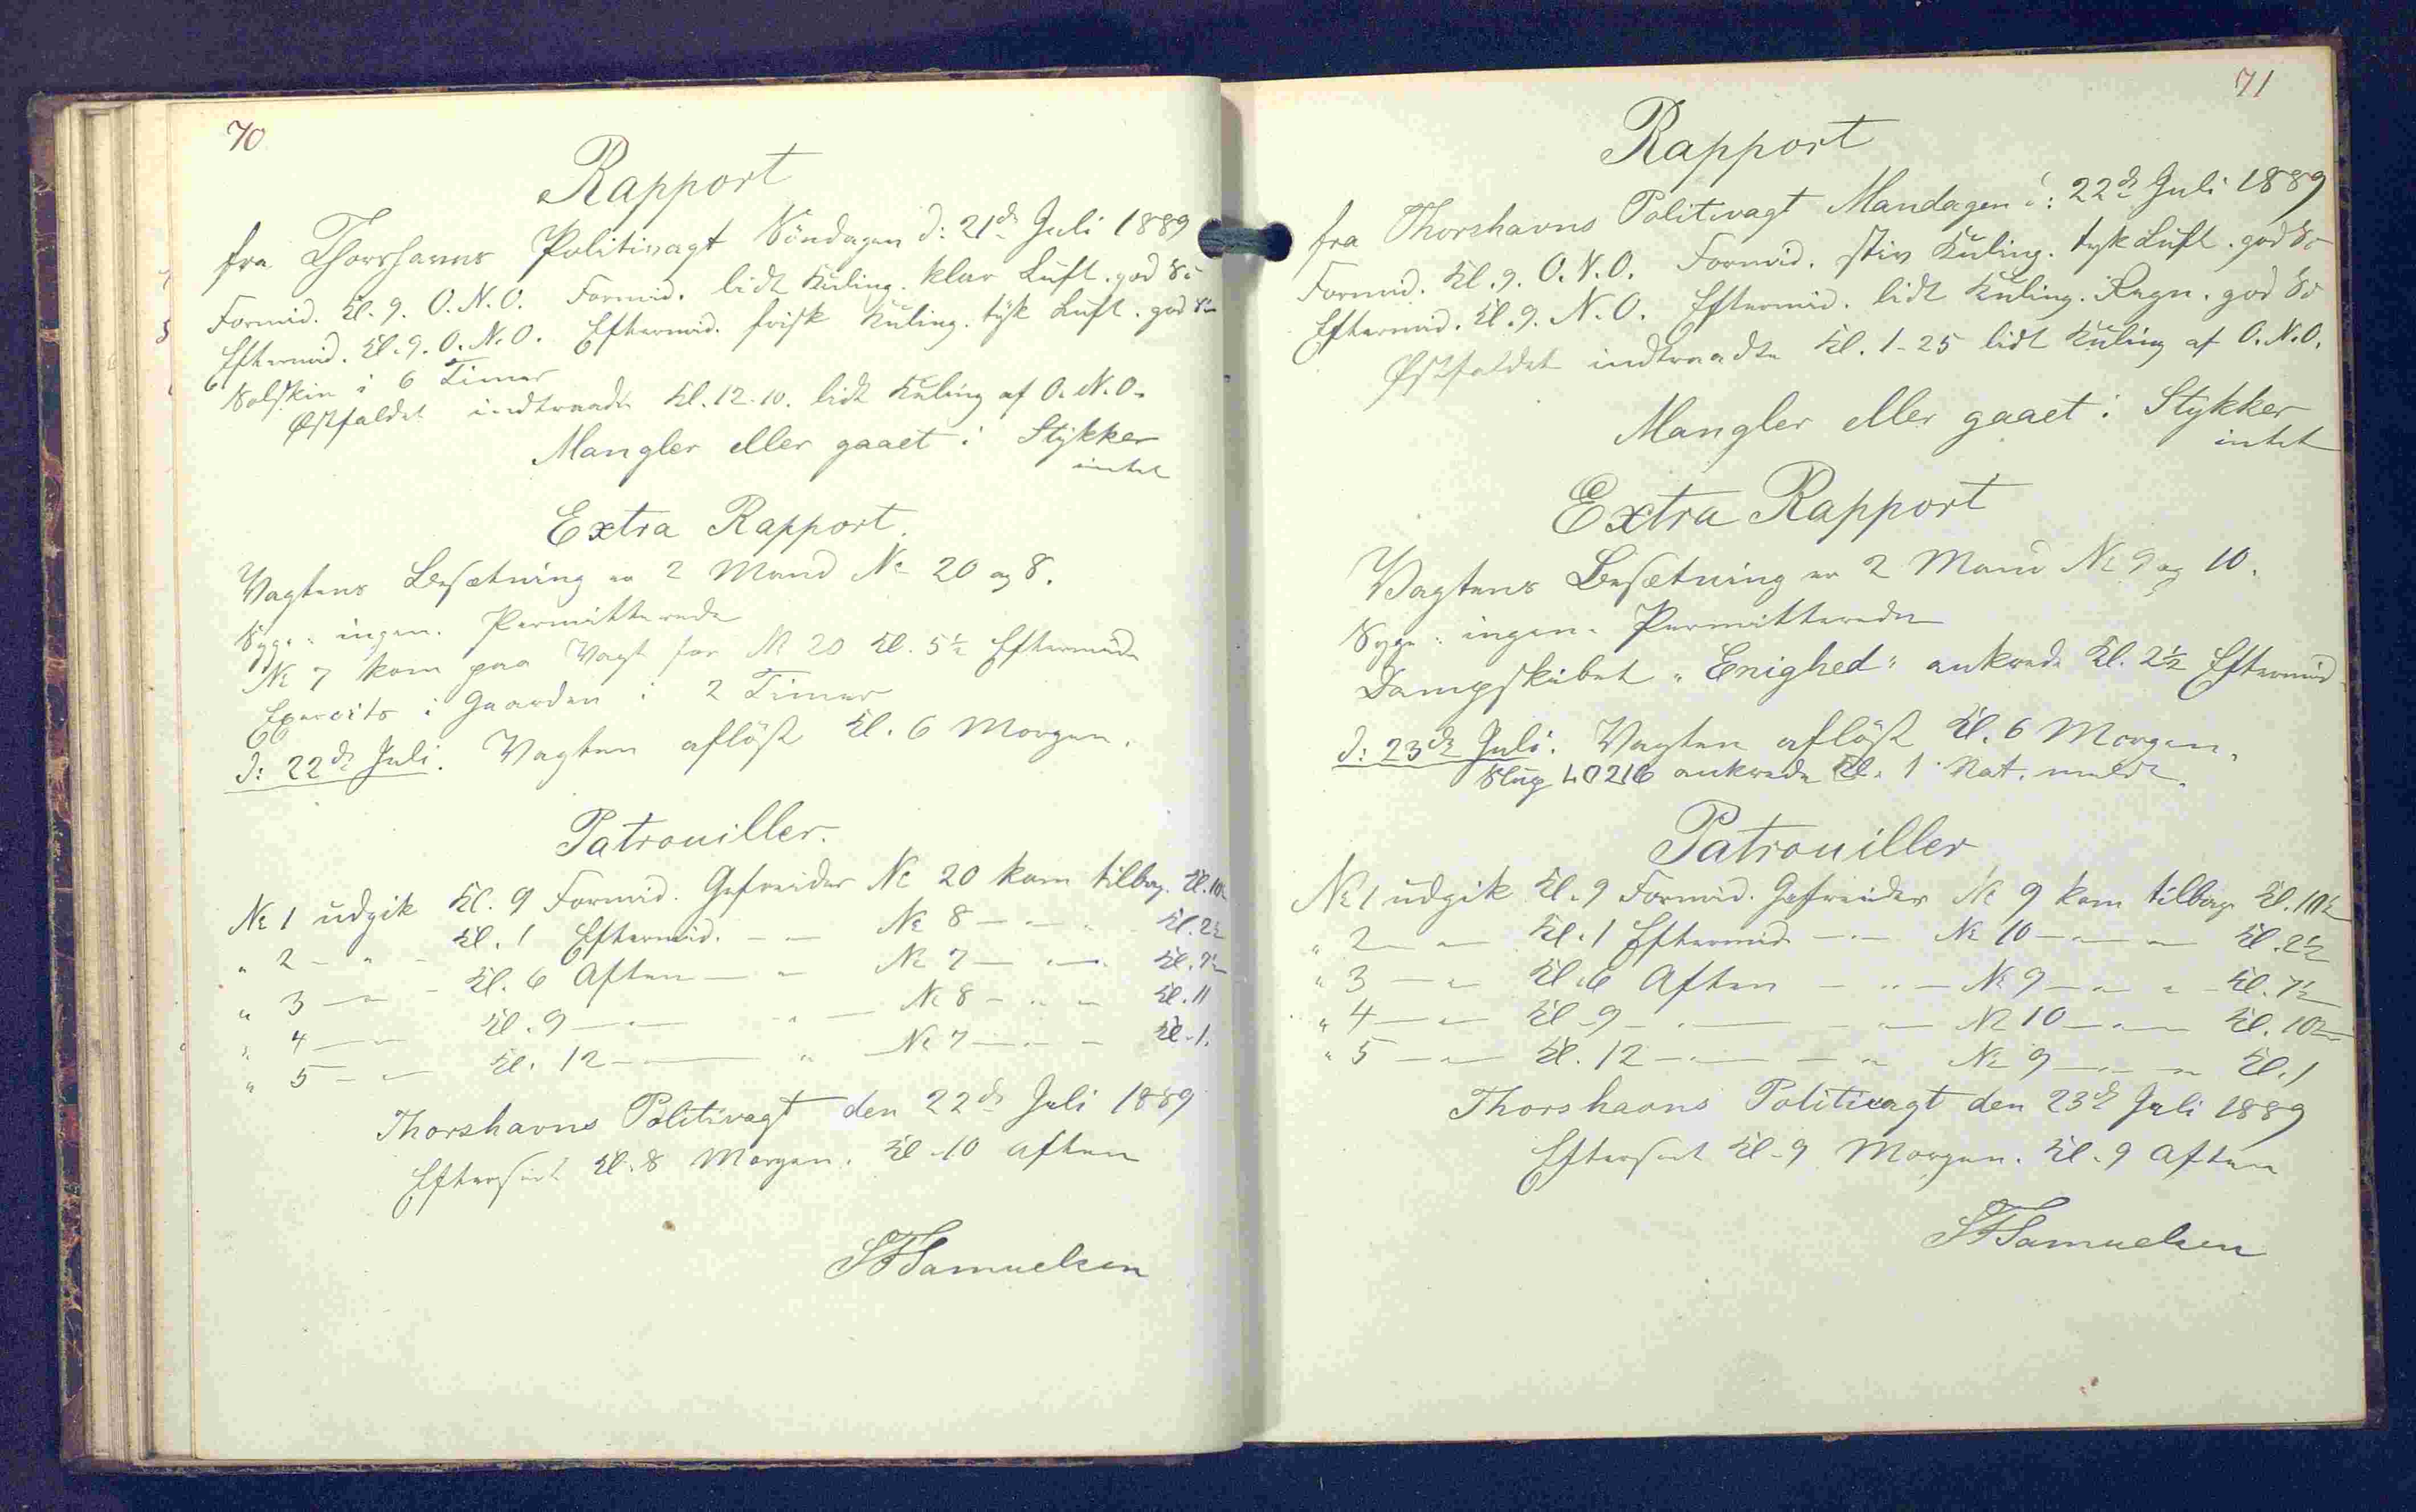 70
Rapport
fra Thorshavns Politivagt Söndagen d: 21de Juli 1889
Formid. Kl. 9. O.N.O. Formid. lidt Kuling. klar Luft. god Sö
Eftermid. Kl. 9. O.N.O. Eftermid. frisk Kuling. tyk Luft. god Sö
Solskin i 6 Timer
Østfaldet indtraadte Kl. 12-10. lidt Kuling af O.N.O.
Mangler eller gaaet i Stykker
intet
Extra Rapport.
Vagtens Besætning er 2 Mand No 20 og 8.
Syge: ingen. Permitterede
No 7 kom paa Vagt for No 20 Kl. 5½ Eftermid
Exercits i Gaarden i 2 Timer
d: 22de Juli. Vagten aflöst Kl. 6 Morgen.
Patrouiller.
No 1 udgik Kl. 9 Formid. Gefreider No 20 kom tilbag. Kl. 10½
" 2 - " - Kl. 1 Eftermid. - - No 8 - - - Kl. 2½
" 3 - " - Kl. 6 Aften - " No 7 - " - Kl. 7½
" 4 - " - Kl. 9 - " - - " - No 8 - " - Kl. 11
" 5 - " - Kl. 12 - " - " - No 7 - " - Kl. 1.
Thorshavns Politivagt den 22de Juli 1889
Efterset Kl. 8 Morgen. Kl. 10 Aften
SFSamuelsen
71
Rapport
fra Thorshavns Politivagt Mandagen d: 22de Juli 1889
Formid. Kl. 9. O.N.O. Formid. stiv Kuling. tyk Luft. god Sö
Eftermid. Kl. 9. N.O. Eftermid. lidt Kuling. Regn. god Sö
Østfaldet indtraadte Kl. 1-25 lidt Kuling af O.N.O.
Mangler eller gaaet i Stykker
intet
Extra Rapport
Vagtens Besætning er 2 Mand No 9 og 10.
Syge: ingen. Permitterede
Dampskibet "Enighed" ankrede Kl. 2½ Eftermid.
d: 23de Juli. Vagten aflöst Kl. 6 Morgen.
Slup ankrede Kl. 1 Nat. meldt.
Patrouiller
No 1 udgik Kl. 9 Formid. Gefreider No 9 kom tilbag. Kl. 10½
" 2 - " - Kl. 1 Eftermid. - " - No 10 - " - " - Kl. 2½
" 3 - " - Kl. 6 Aften - " - No 9 - " - " - Kl. 7½
" 4 - " - Kl. 9 - " - - " - No 10 - " - Kl. 10½
" 5 - " - Kl. 12 - " - - " No 9 - " - " Kl. 1
Thorshavns Politivagt den 23de Juli 1889
Efterset Kl. 9 Morgen. Kl. 9 Aften
SFSamuelsen